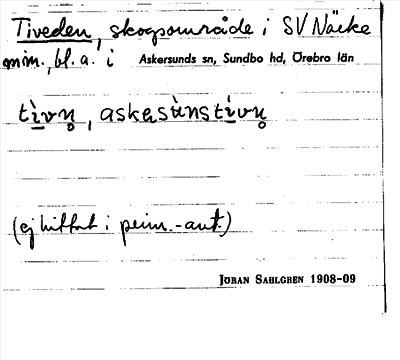 Tiveden, skogsområde i SV Närke
m.m., bl.a. i Askersunds sn, Sundbo hd, Örebro län
tìvn̥, askəsùnstìvn̥
(ej hittat i prim.-ant.)
JÖRAN SAHLGREN 1908-09